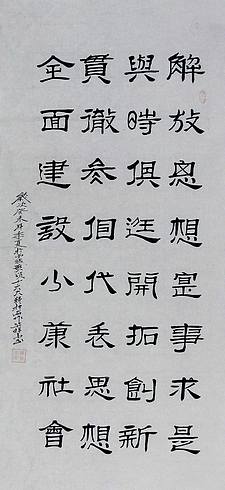 解放思想寔事求是
與時俱進開拓創新
貫徹参個代表思想
全面建設小康社會
歲次癸未年